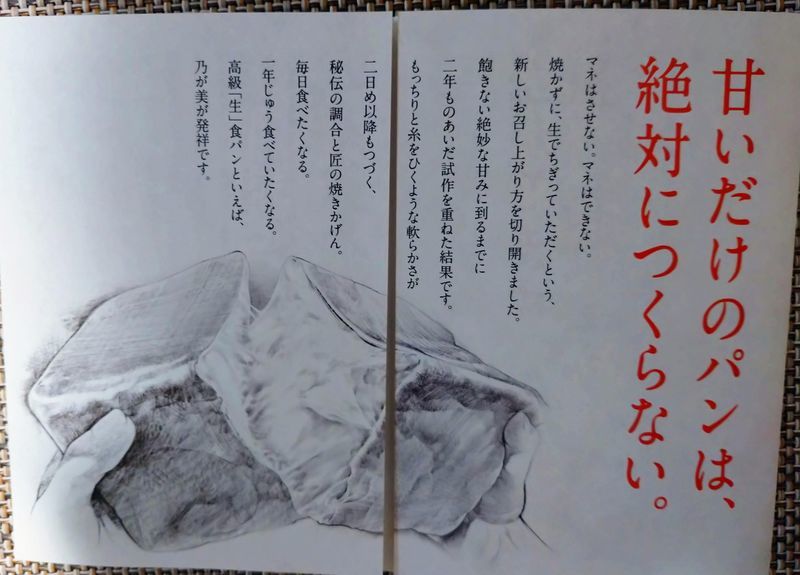 甘いだけのパンは、
絶対につくらない。
マネはさせない。マネはできない。
焼かずに、生でちぎっていただくという、
新しいお召し上がり方を切り開きました。
飽きない絶妙な甘みに到るまでに
二年ものあいだ試作を重ねた結果です。
もっちりと糸をひくような軟らかさが
二日め以降もつづく、
秘伝の調合と匠の焼きかげん。
毎日食べたくなる。
一年じゅう食べていたくなる。
高級「生」食パンといえば、
乃が美が発祥です。